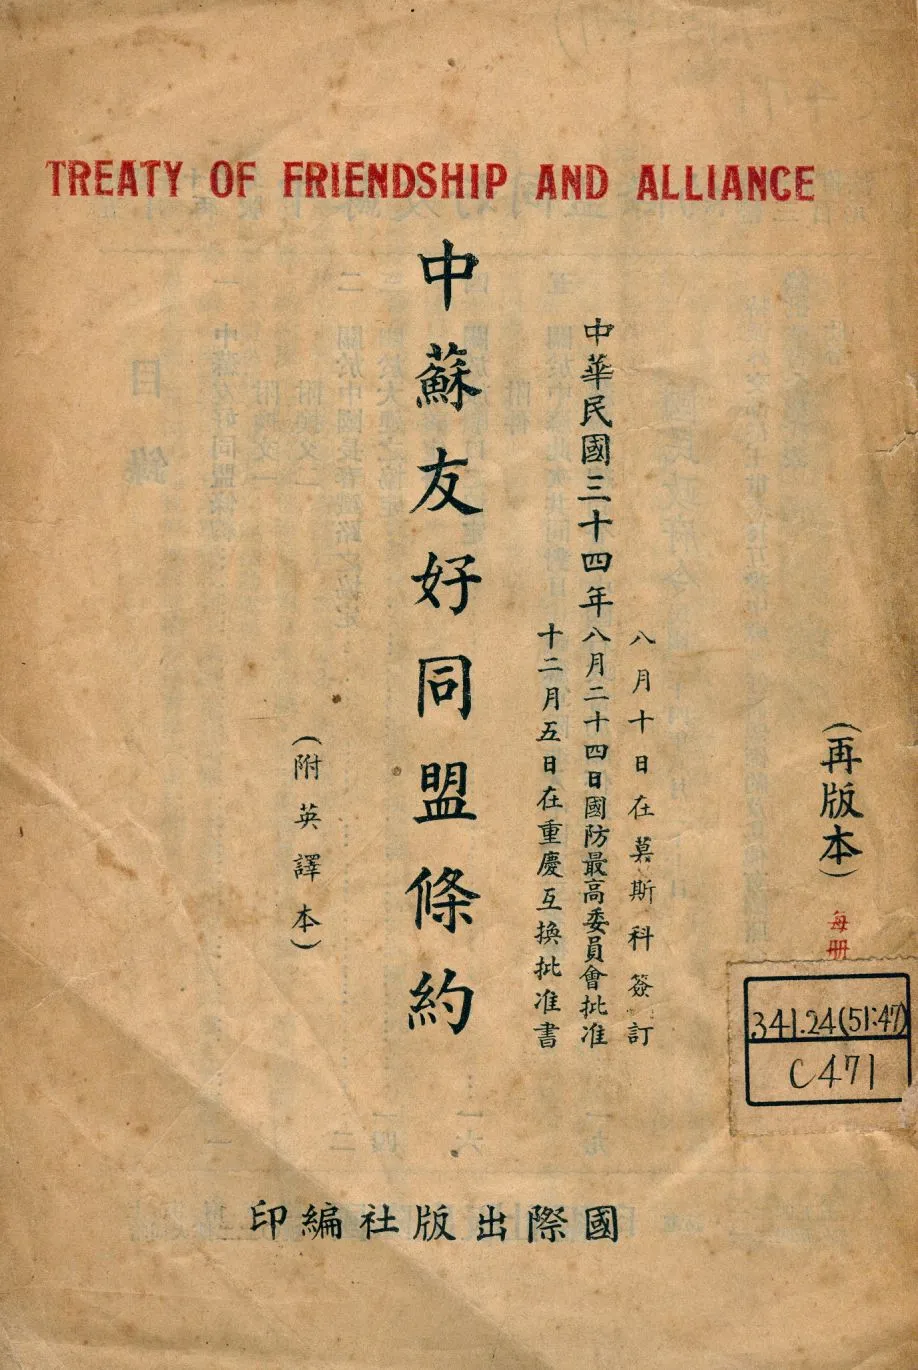 TREATY OF FRIENDSHIP AND ALLIANCE
(再版本)
每册
341.24(51:47)
C471
八月十日在莫斯科簽訂
中華民國三十四年八月二十四日國防最高委員會批准
十二月五日在重慶互換批准書
中蘇友好同盟條約
(附英譯本)
國際出版社編印